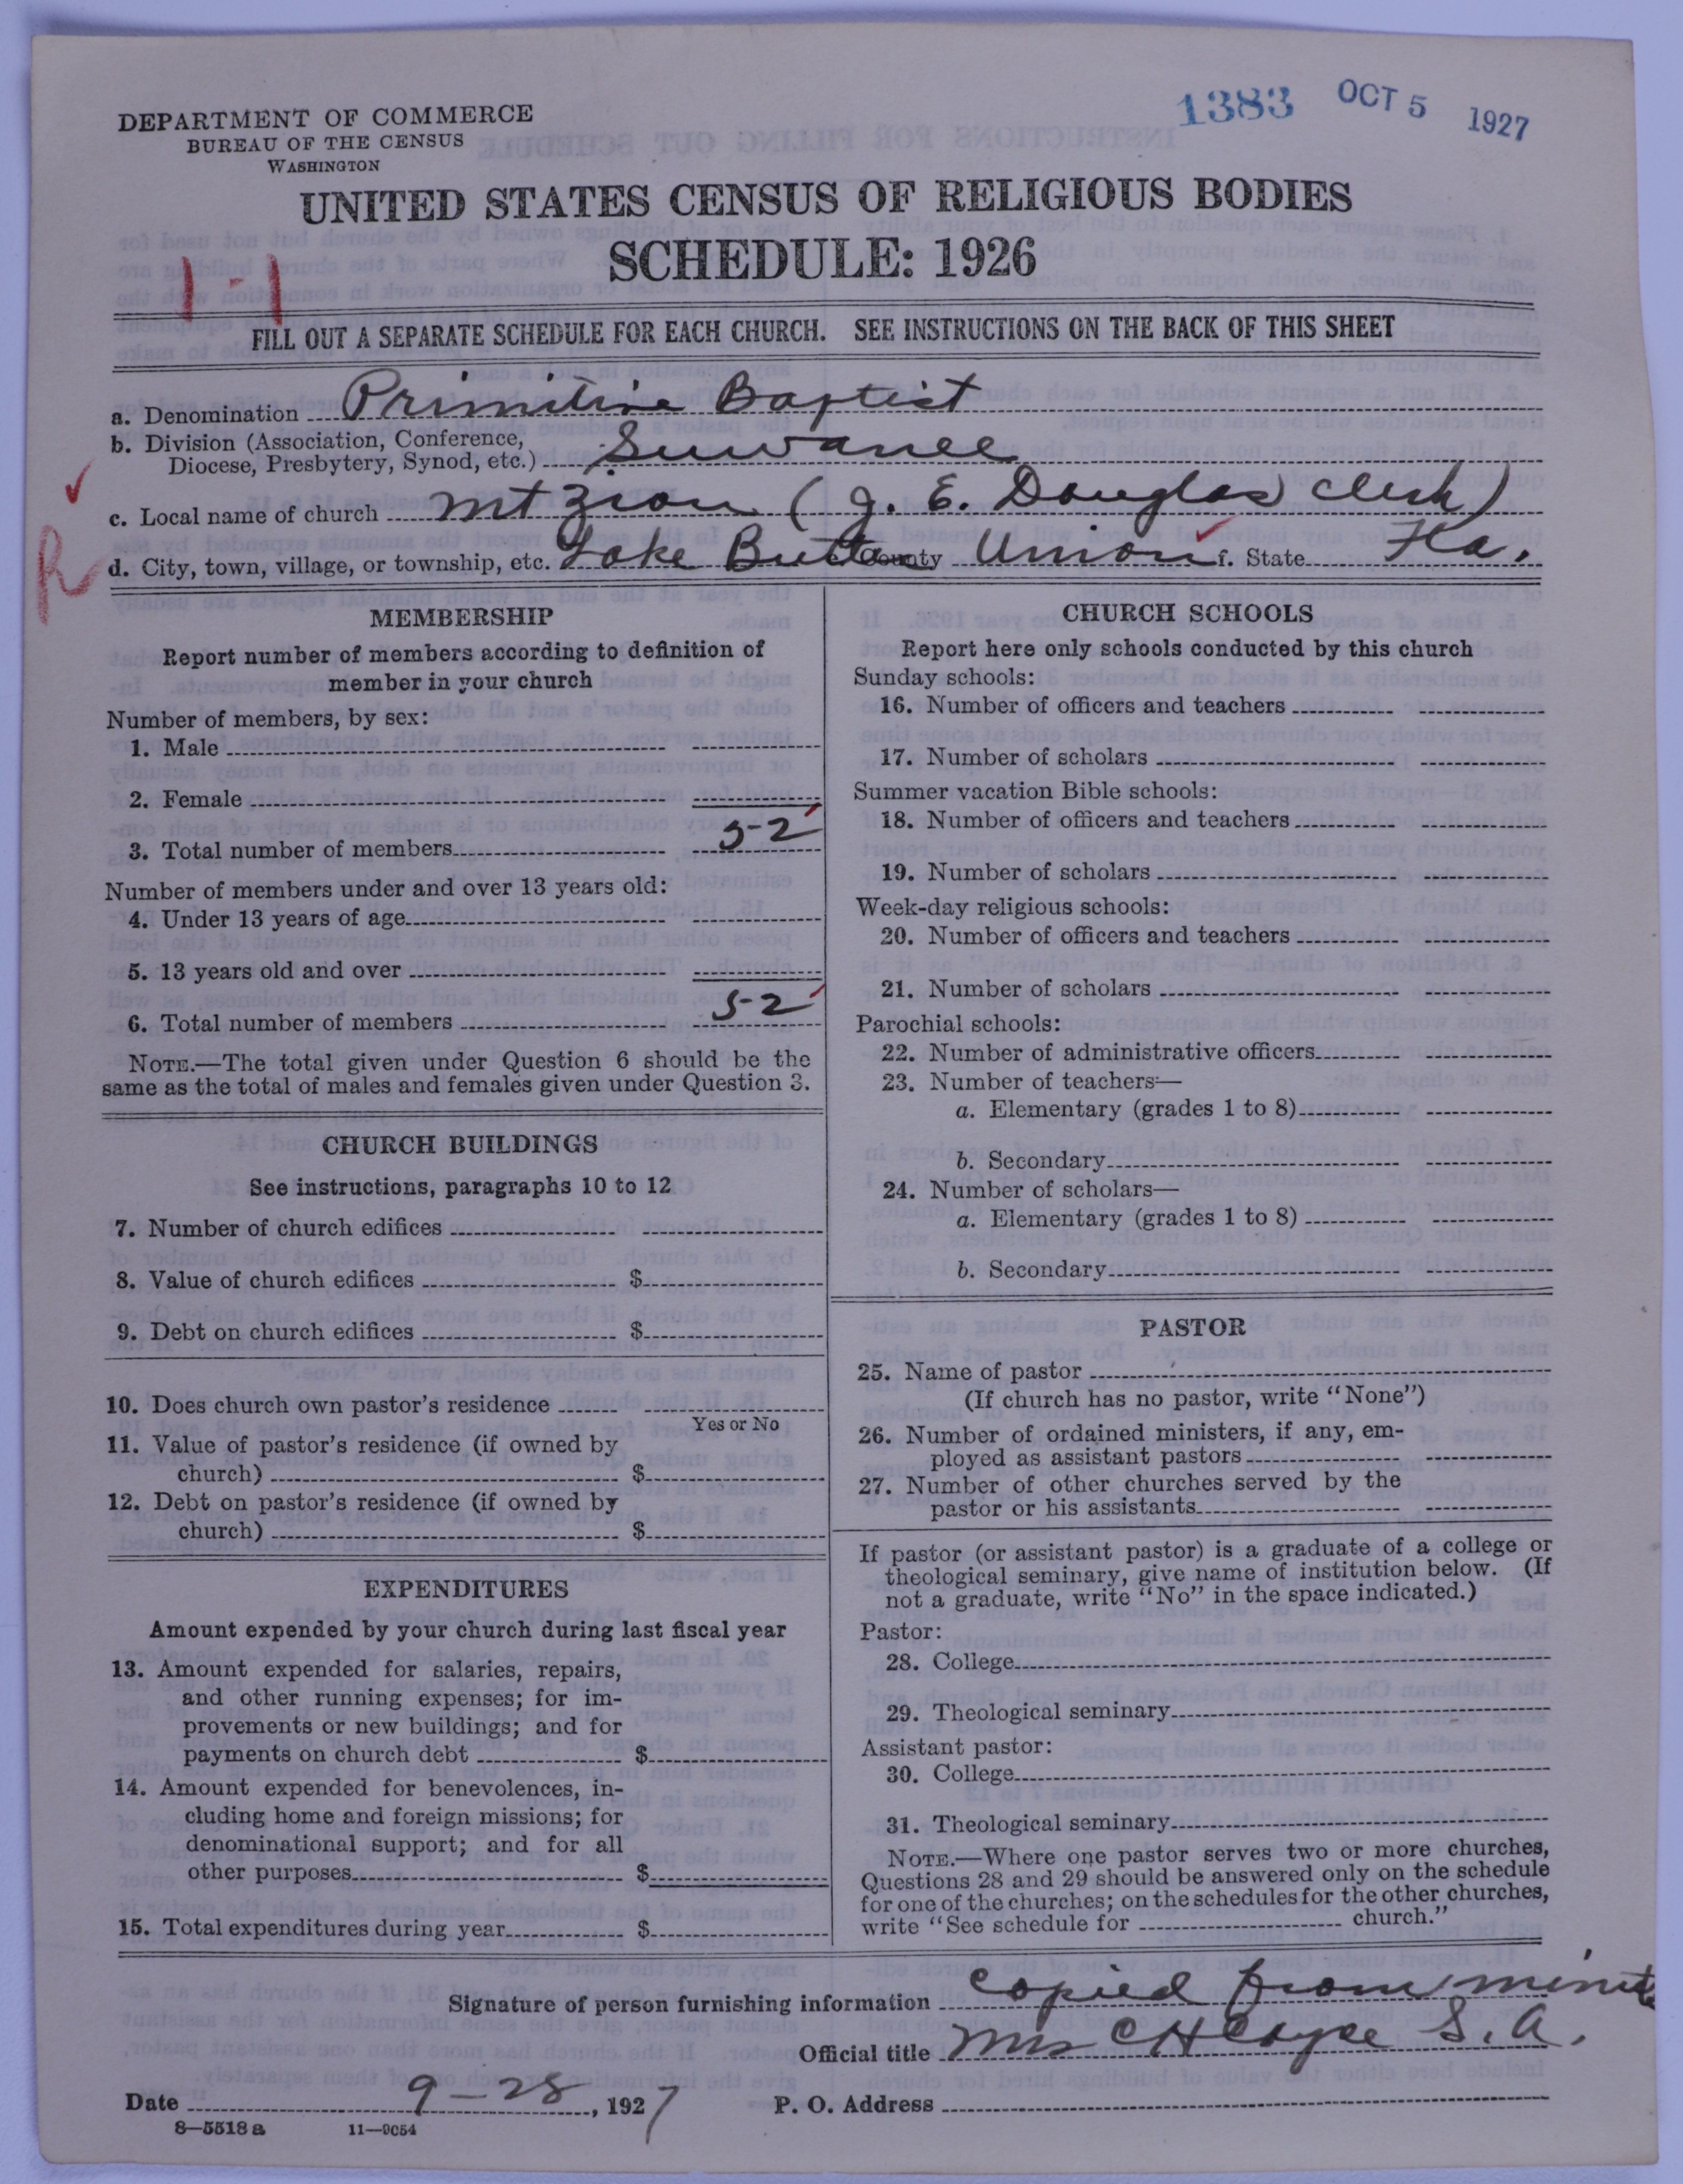 1383 OCT 5 1927
DEPARTMENT OF COMMERCE
BUREAU OF THE CENSUS
WASHINGTON
UNITED STATES CENSUS OF RELIGIOUS BODIES
SCHEDULE: 1926
1-1
FILL OUT A SEPARATE SCHEDULE FOR EACH CHURCH. SEE INSTRUCTIONS ON THE BACK OF THIS SHEET
a. Denomination Primitive Baptist
b. Division (Association, Conference,
Diocese, Presbytery, Synod, etc.) Suwanee
c. Local name of church Mt Zion (J. E. Douglas Clerk)
R
d. City, town, village, or township, etc. Lake Butler County Union f. State Fla.
MEMBERSHIP
Report number of members according to definition of
member in your church
Number of members, by sex:
1. Male
2. Female
3. Total number of members 52
Number of members under and over 13 years old:
4. Under 13 years of age
5. 13 years old and over
6. Total number of members 52
NOTE.—The total given under Question 6 should be the
same as the total of males and females given under Question 3.
CHURCH BUILDINGS
See instructions, paragraphs 10 to 12
7. Number of church edifices
8. Value of church edifices $
9. Debt on church edifices $
10. Does church own pastor's residence
Yes or No
11. Value of pastor's residence (if owned by
church) $
12. Debt on pastor's residence (if owned by
church) $
EXPENDITURES
Amount expended by your church during last fiscal year
13. Amount expended for salaries, repairs,
and other running expenses; for im-
provements or new buildings; and for
payments on church debt $
14. Amount expended for benevolences, in-
cluding home and foreign missions; for
denominational support; and for all
other purposes $
15. Total expenditures during year $
CHURCH SCHOOLS
Report here only schools conducted by this church
Sunday schools:
16. Number of officers and teachers
17. Number of scholars
Summer vacation Bible schools:
18. Number of officers and teachers
19. Number of scholars
Week-day religious schools:
20. Number of officers and teachers
21. Number of scholars
Parochial schools:
22. Number of administrative officers
23. Number of teachers—
a. Elementary (grades 1 to 8)
b. Secondary
24. Number of scholars—
a. Elementary (grades 1 to 8)
b. Secondary
PASTOR
25. Name of pastor
(If church has no pastor, write "None")
26. Number of ordained ministers, if any, em-
ployed as assistant pastors
27. Number of other churches served by the
pastor or his assistants
If pastor (or assistant pastor) is a graduate of a college or
theological seminary, give name of institution below. (If
not a graduate, write "No" in the space indicated.)
Pastor:
28. College
29. Theological seminary
Assistant pastor:
30. College
31. Theological seminary
NOTE.—Where one pastor serves two or more churches,
Questions 28 and 29 should be answered only on the schedule
for one of the churches; on the schedules for the other churches,
write "See schedule for church."
Signature of person furnishing information copied from minute
Official title Mrs C H S. A.
Date 9-28, 1927 P. O. Address
8—5518 a 11—9054